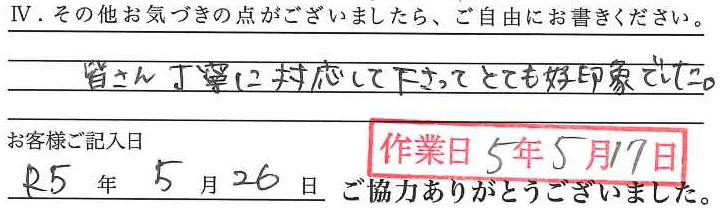 Ⅳ．その他お気づきの点がございましたら、ご自由にお書きください。
皆さん丁寧に対応して下さってとても好印象でした。
お客様ご記入日
作業日 5年5月17日
R5 年 5 月 26 日
ご協力ありがとうございました。